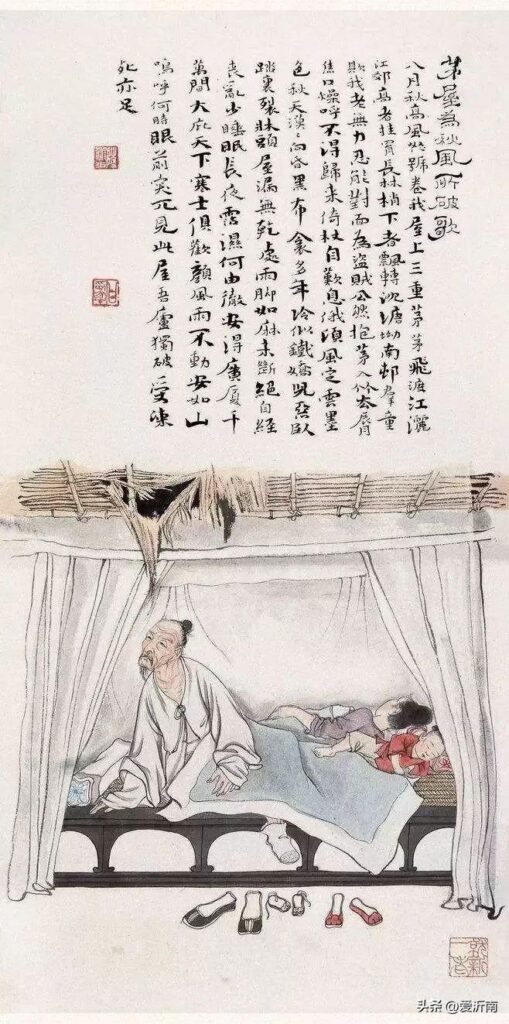 茅屋為秋風所破歌
八月秋高風怒號卷我屋上三重茅茅飛渡江灑
江郊高者挂罥長林梢下者飄轉沈塘坳南邨群童
欺我老無力忍能對面為盜賊公然抱茅入竹去脣
焦口燥呼不得歸來倚杖自歎息俄頃風定雲墨
色秋天漠〻向昏黑布衾多年冷似鐵嬌兒惡臥
踏裏裂牀頭屋漏無乾處雨腳如麻未斷絕自經
喪亂少睡眠長夜霑濕何由徹安得廣厦千
萬間大庇天下寒士俱歡顏風雨不動安如山
嗚呼何時眼前突兀見此屋吾廬獨破受凍
死亦足
头条 @爱沂南